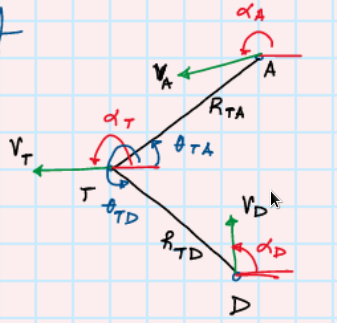 α_A
A
V_A
R_TA
α_T
θ_TA
V_T
T
θ_TD
V_D
R_TD
α_D
D